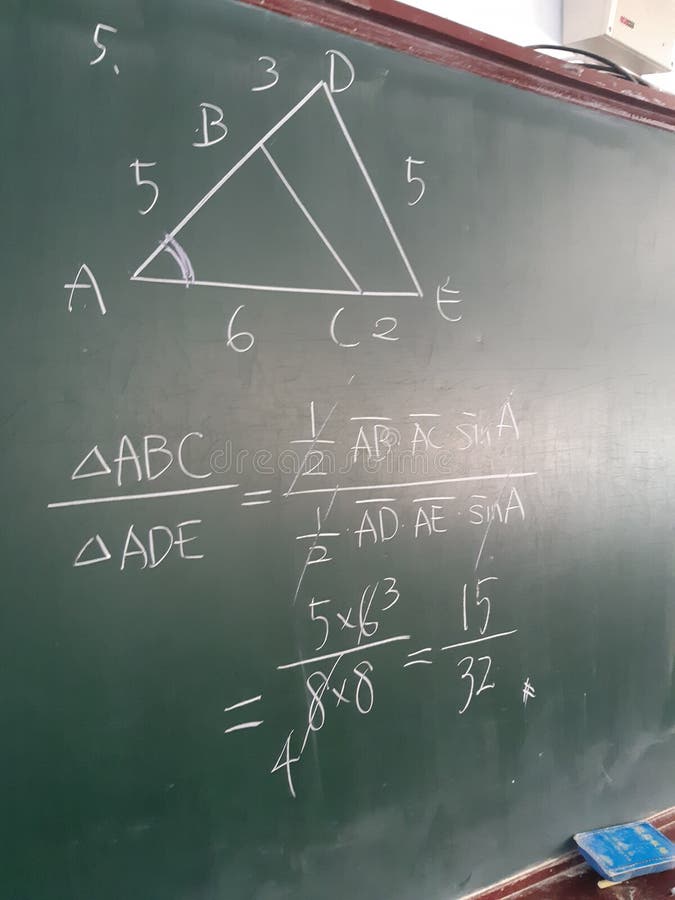 5.
3 D
B
5 5
A 6 C 2 E
△ABC / △ADE = 1/2 A̅B̅ A̅C̅ sinA / 1/2 · A̅D̅ · A̅E̅ · sinA
= 5×6 3 / 8×8 4 = 15/32
dreamstime.com